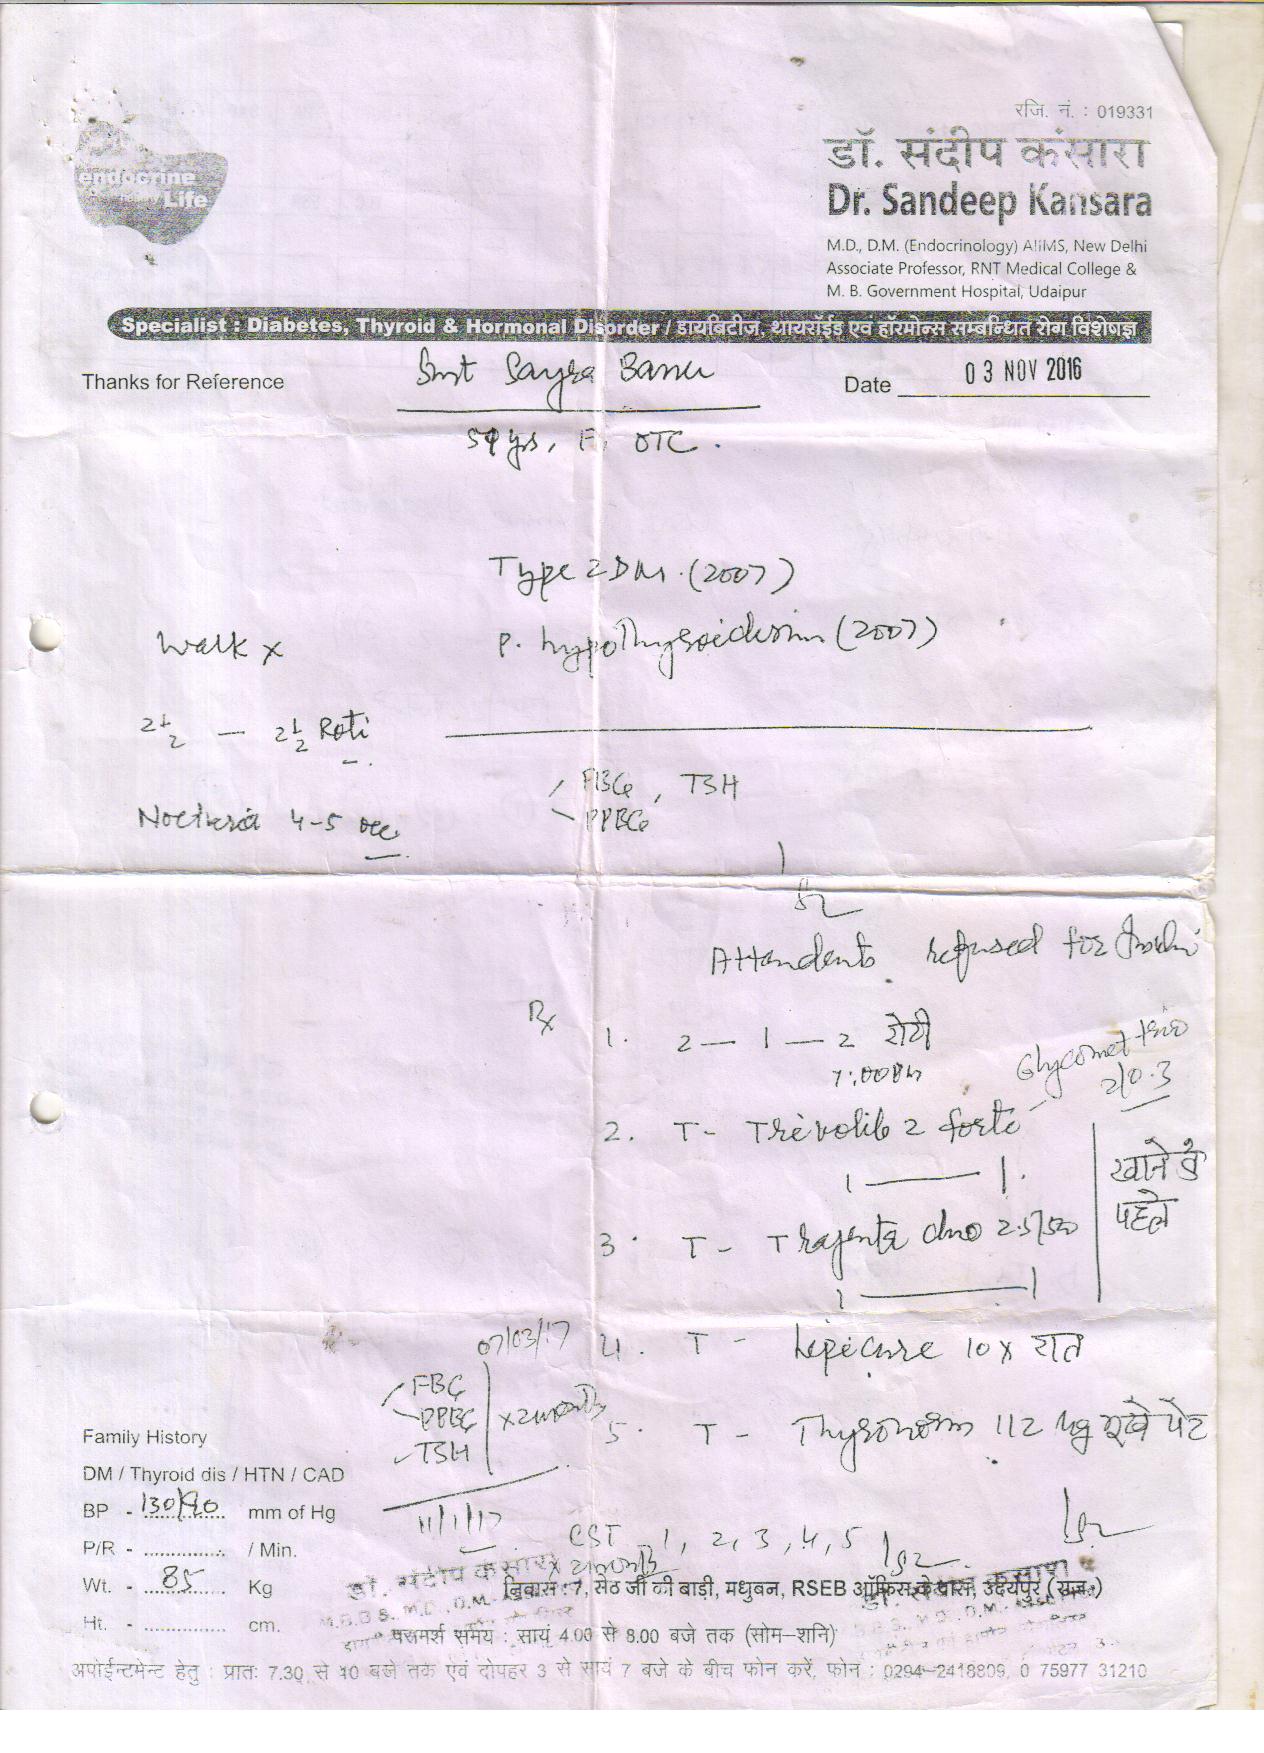 रजि. नं. : 019331
endocrine
Life
डॉ. संदीप कंसारा
Dr. Sandeep Kansara
M.D., D.M. (Endocrinology) AIIMS, New Delhi
Associate Professor, RNT Medical College &
M. B. Government Hospital, Udaipur
Specialist : Diabetes, Thyroid & Hormonal Disorder / डायबिटीज, थायरॉईड एवं हॉरमोन्स सम्बन्धित रोग विशेषज्ञ
Thanks for Reference Smt Sayra Banu Date 03 NOV 2016
59 yrs, F, OTC.
Type 2 DM. (2007)
Walk x P. hypothyroidism (2007)
2½ — 2½ Roti
FBG, TSH
PPBG
Nocturia 4-5
Attendents refused for
Rx
1. 2 — 1 — 2 रोटी
7:00 Pm
Glycomet trio 2/0.3
2. T- Trivolib 2 forte
1 — 1.
खाने के पहले
3. T- Trajenta duo 2.5/500
1 — 1
07/03/17
4. T - Lipicure 10 x रात
FBG
PPBG x 2 months
TSH
5. T - Thyronorm 112 ug भूखे पेट
Family History
DM / Thyroid dis / HTN / CAD
BP - 130/90 mm of Hg
11/1/17
P/R - / Min.
CST 1, 2, 3, 4, 5
x 2 months
Wt. - 85 Kg
डॉ. संदीप कंसारा
निवास : 7, सेठ जी की बाड़ी, मधुबन, RSEB ऑफिस के पास, उदयपुर (राज.)
Ht. - cm.
परामर्श समय : सायं 4.00 से 8.00 बजे तक (सोम-शनि)
अपोईन्टमेन्ट हेतु : प्रातः 7.30 से 10 बजे तक एवं दोपहर 3 से सायं 7 बजे के बीच फोन करें, फोन : 0294-2418809, 0 75977 31210